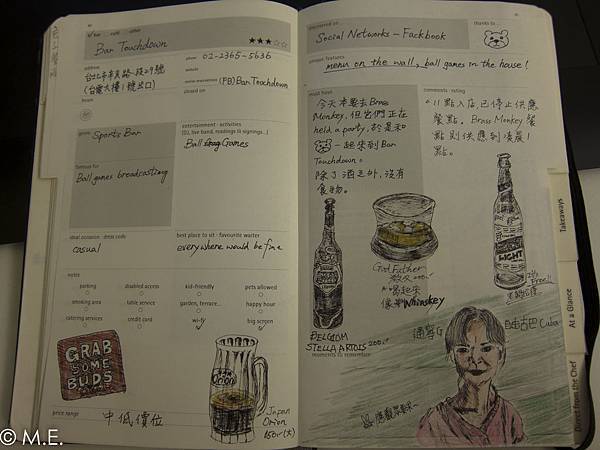 bar
café
other
Bar Touchdown
★★★☆☆
address
台北市市民路一段29號
phone
02-2365-5636
website
(台電大樓1號出口)
(FB) Bar Touchdown
closed on
genre
Sports Bar
entertainment · activities
(DJ, live band, readings & signings...)
Ball Games
famous for
Ball games broadcasting
ideal occasion · dress code
casual
best place to sit · favourite waiter
everywhere would be fine
notes
parking
disabled access
kid-friendly
pets allowed
smoking area
table service
garden, terrace...
happy hour
catering services
credit card
wi-fy
big screen
GRAB
SOME
BUDS
Orion
Japan
Orion
150r(大)
price range
中低價位
discovered on...
Social Networks - Fackbook
thanks to...
unique features
menu on the wall, ball games in the house!
must have
今天本要去Brass
Monkey,但它們正在
held a party,於是和
一起來到Bar
Touchdown。
除了酒之外,沒有
食物。
comments · rating
"11點入店已停止供應
餐點。Brass Monkey餐
點則供應到凌晨1
點。
God Father
教父200.-
"喝起來
像Whiskey
LIGHT
BELGIUM
STELLA ARTOIS 200.-
moments to remember
自由古巴 Cuba
Takeaways
At a Glance
Dishes from the Chef
© M.E.